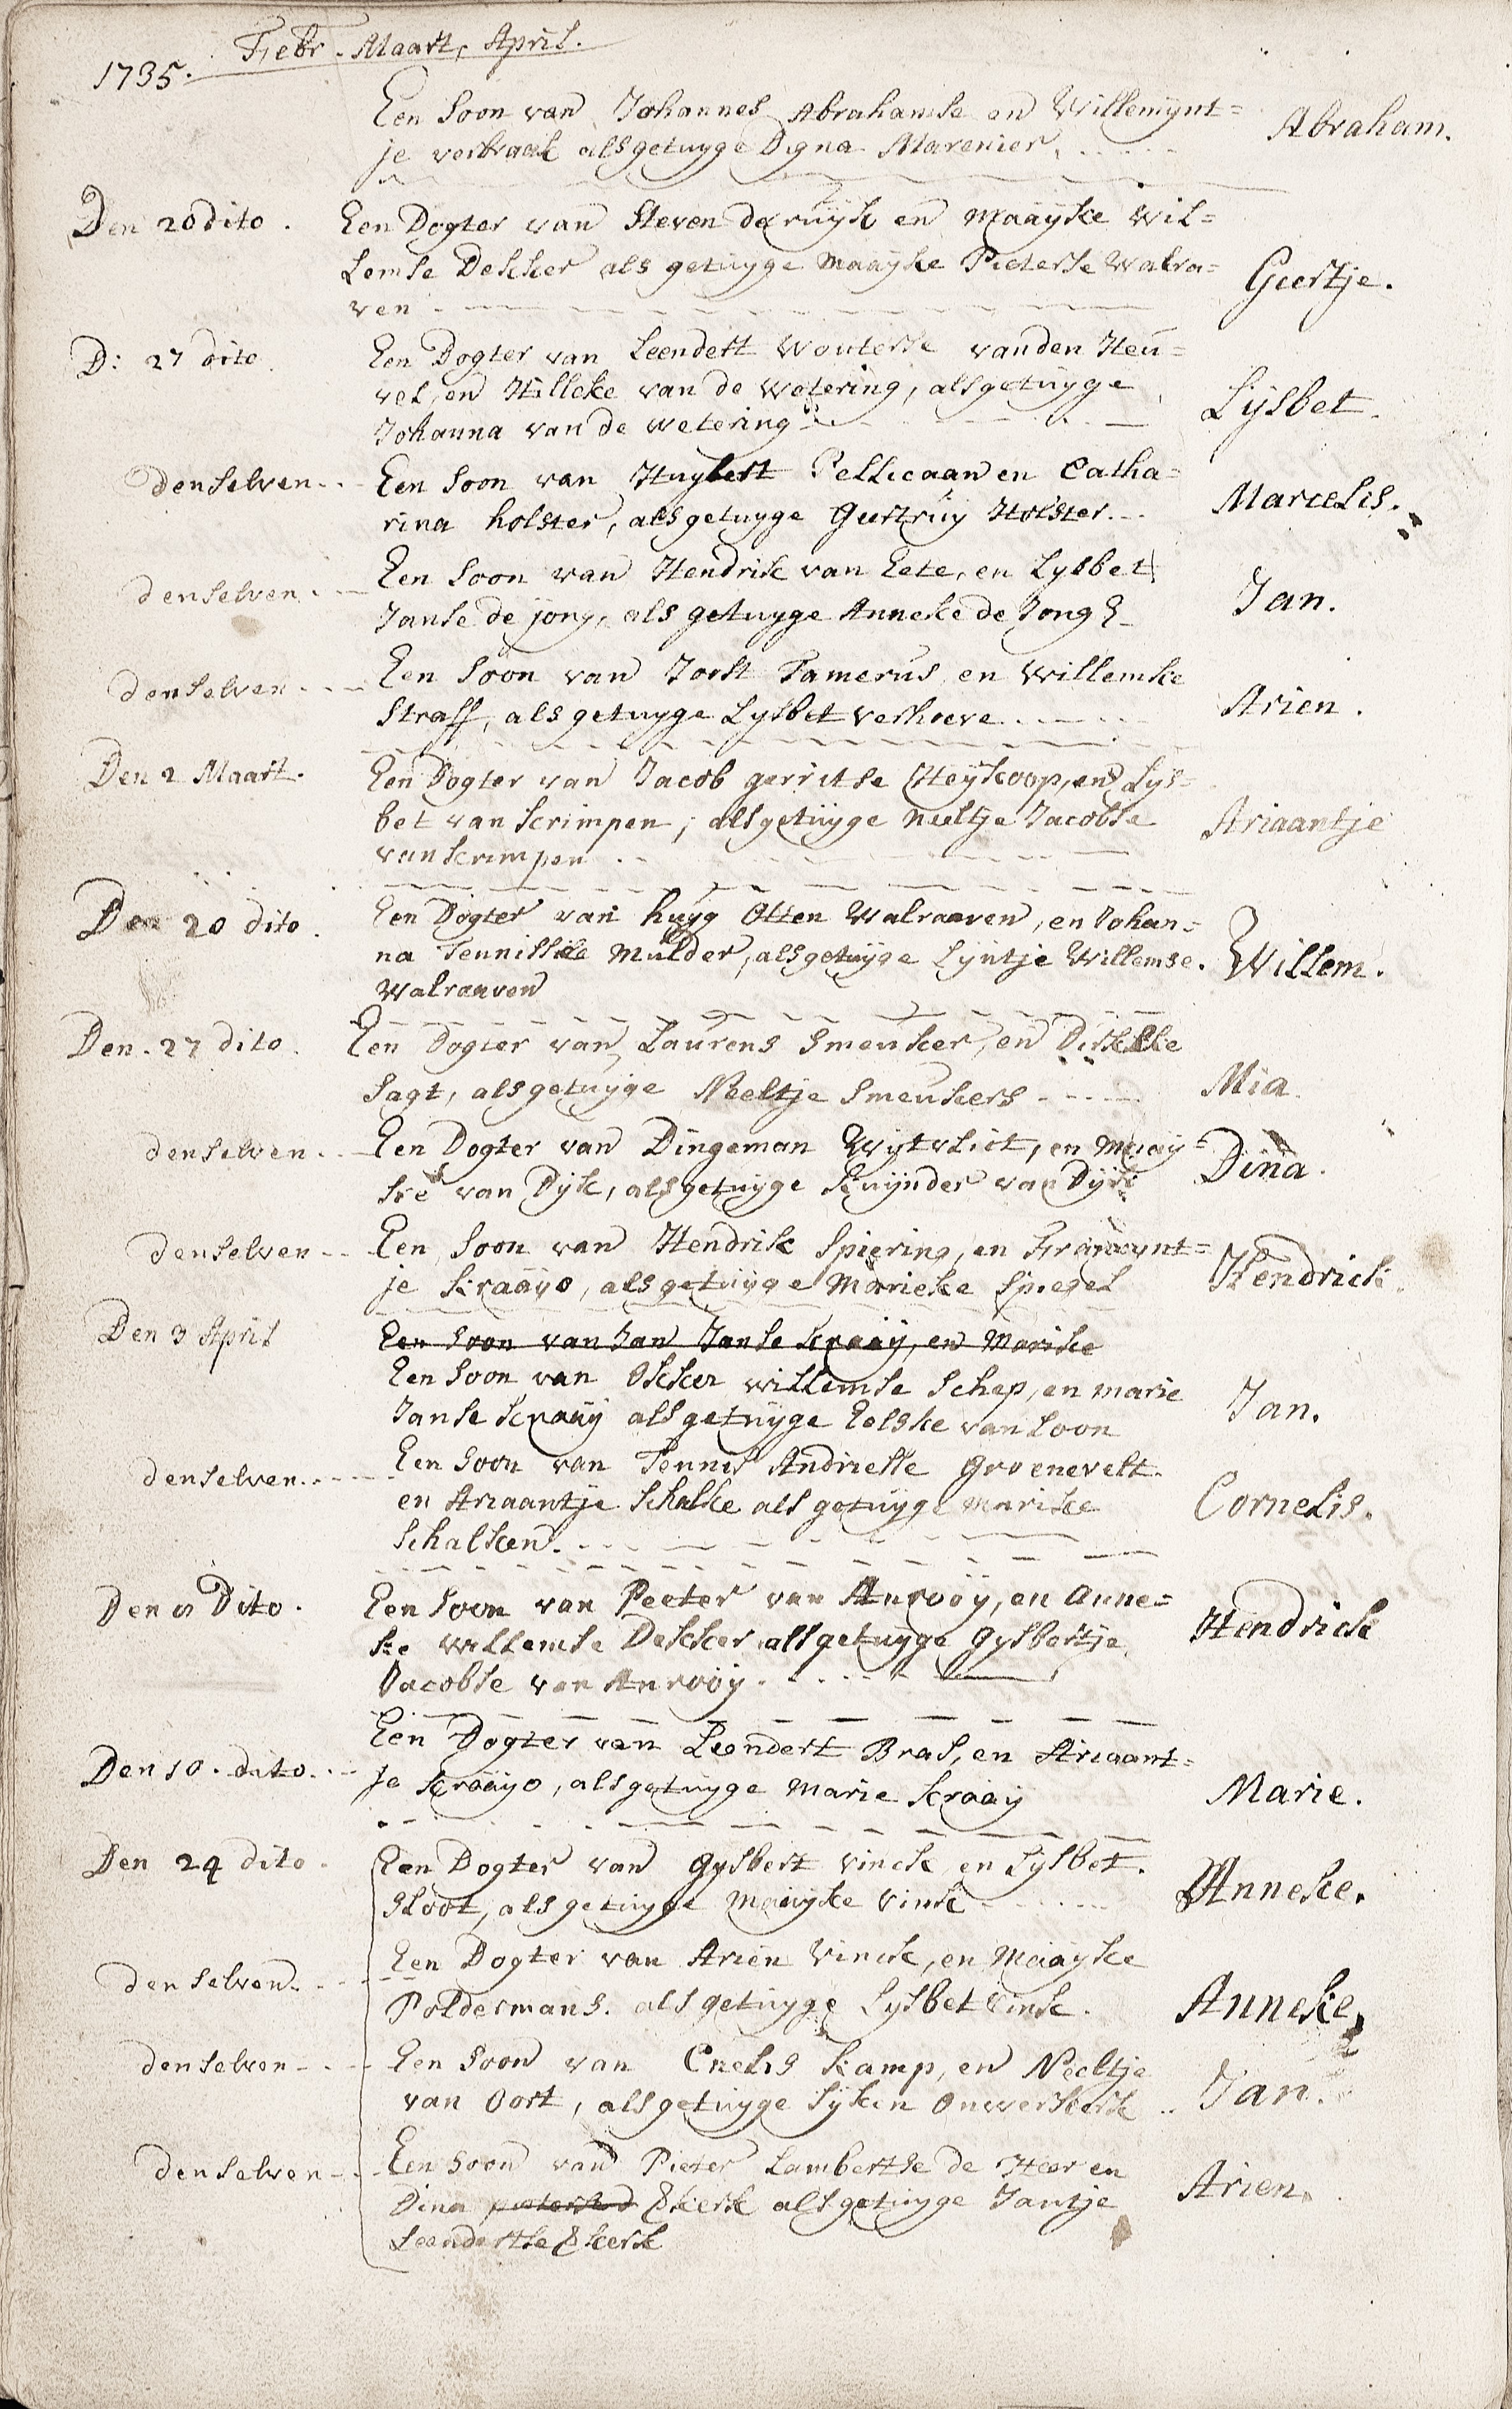 1735. Febr. Maart, April.
Een Soon van Johannes Abrahamse en Willemijnt=
je verbraak als getuyge Digna Marenier. Abraham.
Den 20 dito. Een Dogter van Steven de ruijk en Maayke Wil=
lemse Dekker als getuyge Maayke Pieterse Walra= Geertje.
ven
D: 27 dito. Een Dogter van Leendert Wouterse van den Heu=
vel, en Hilleke van de Wetering, als getuyge Lijsbet.
Johanna van de Wetering
denselven Een Soon van Huybert Pellicaan en Catha= Marcelis.
rina holster, als getuyge Geertruy Holster.
denselven Een Soon van Hendrik van Eete, en Lysbet Jan.
Janse de jong, als getuyge Anneke de Jong
denselven Een Soon van Joost Tamerus, en Willemke Arien.
Straff, als getuyge Lysbet verhoeve.
Den 2 Maart. Een Dogter van Jacob gerritse Heykoop, en Lys=
bet van Scrimpen, als getuyge Neeltje Jacobse Ariaantje
van Scrimpen
Den 20 dito. Een Dogter van huyg Otten Walraaven, en Johan=
na Teunisse Mulder, als getuyge Lyntje Willemse. Willem.
Walraaven
Den. 27 dito. Een Dogter van Laurens Smeuker, en
Sagt, als getuyge Neeltje Smeukers Mia.
denselven Een Dogter van Dingeman Wytvliet, en Maay= Dina.
ke van Dyk, als getuyge Kuynder van Dyk
denselven Een Soon van Hendrik Spiering, en Fransynt=
je Kraayo, als getuyge Marieke Spiegel Hendrick.
Den 3 April Een Soon van Jan Janse Kraay, en Marike
Een Soon van Okker willemse Schep, en marie Jan.
Janse Kraay als getuyge Eelske van Loon
denselven Een Soon van Teunis Andriesse Groenevelt.
en Ariaantje Schalke als getuyge Marike Cornelis.
Schalken.
Den Dito. Een Soon van Peeter van Anrooy, en Anne= Hendrick
ke Willemse Dekker als getuyge Gysbertje
Jacobse van Anrooy.
Een Dogter van Leendert Bras, en Ariaant=
Den 10. dito. je Kraayo, als getuyge Marie Kraay Marie.
Den 24 dito. Een Dogter van Gysbert Vinck en Lysbet. Anneke.
Sloot, als getuyge Maayke Vink
denselven. Een Dogter van Arien Vinck, en Maayke
Poldermans. als getuyge Lysbet Vink. Anneke
denselven Een Soon van Cnelis Kamp, en Neeltje
van Oort, als getuyge Syken Onwerkerk Jan.
denselven Een Soon van Pieter Lambertse de Heer en Arien.
Dina Pieterse Ekerk als getuyge Jantje
Leendertse Ekerk